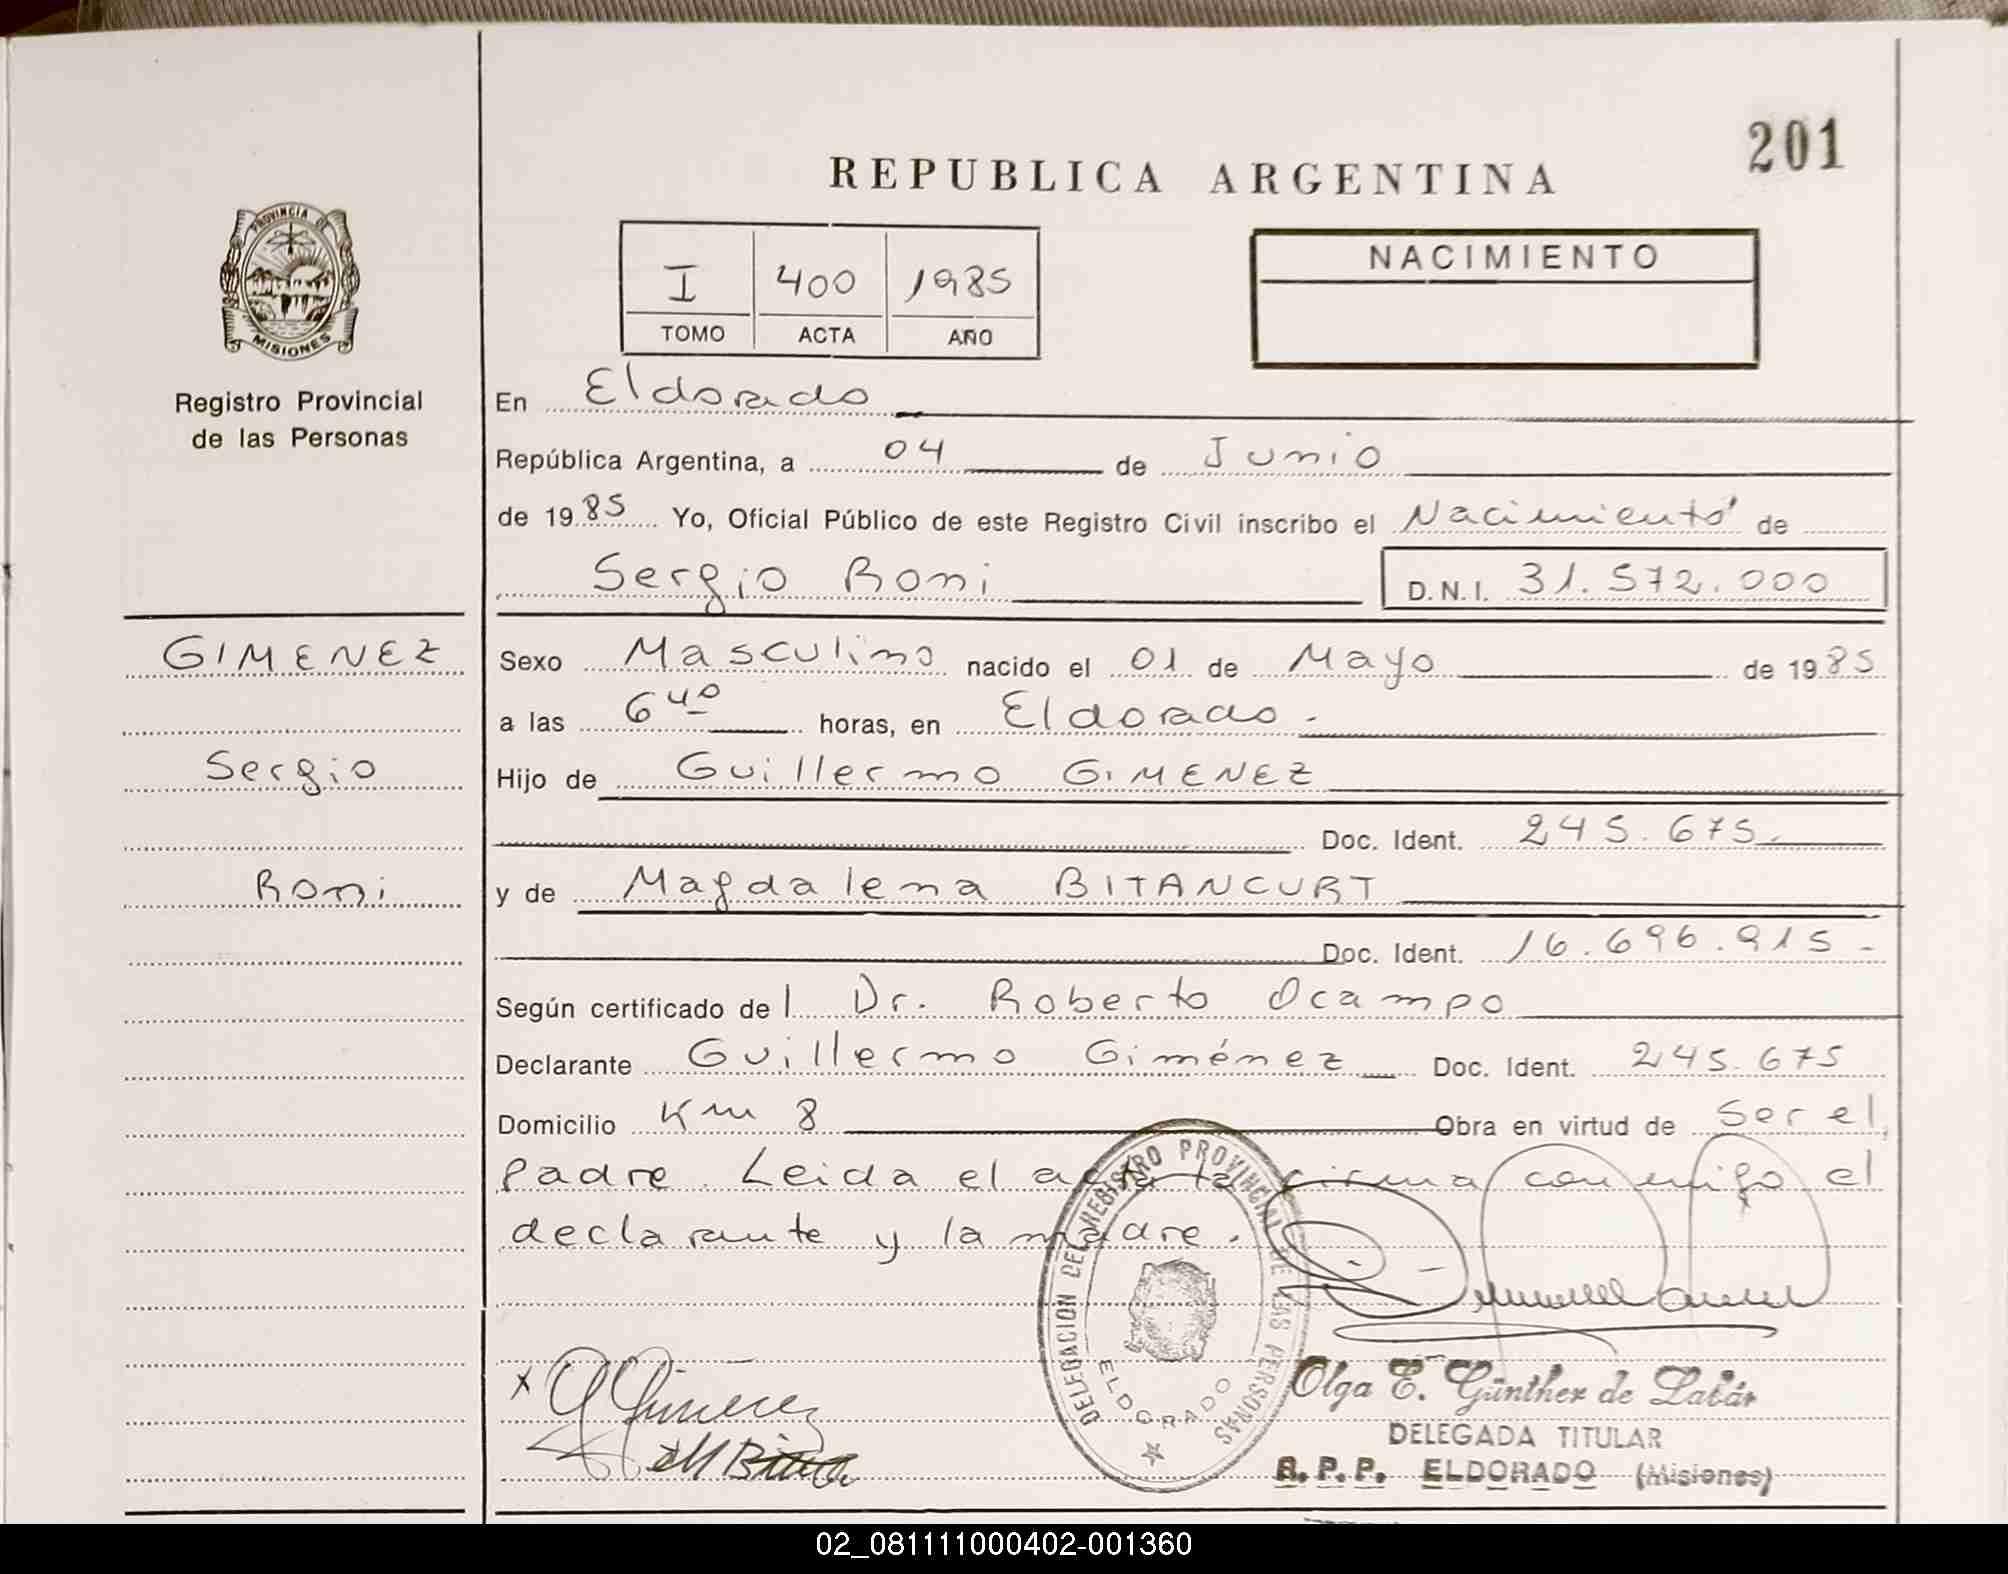 201
REPUBLICA ARGENTINA
PROVINCIA DE
MISIONES
Registro Provincial
de las Personas
I 400 1985
TOMO ACTA AÑO
NACIMIENTO
En Eldorado
República Argentina, a 04 de Junio
de 1985 Yo, Oficial Público de este Registro Civil inscribo el Nacimiento de
Sergio Roni D.N.I. 31.572.000
GIMENEZ
Sergio
Roni
Sexo Masculino nacido el 01 de Mayo de 1985
a las 6 40 horas, en Eldorado.
Hijo de Guillermo GIMENEZ
Doc. Ident. 245.675.
y de Magdalena BITANCURT
Doc. Ident. 16.696.915-
Según certificado del Dr. Roberto Ocampo
Declarante Guillermo Giménez Doc. Ident. 245.675
Domicilio Km 8 Obra en virtud de Ser el
padre. Leida el acta la firma conmigo el
declarante y la madre.
DELEGACION DEL REGISTRO PROVINCIAL DE LAS PERSONAS
ELDORADO
x G Gimenez
Olga E. Günther de Labár
DELEGADA TITULAR
R.P.P. ELDORADO (Misiones)
02_081111000402-001360